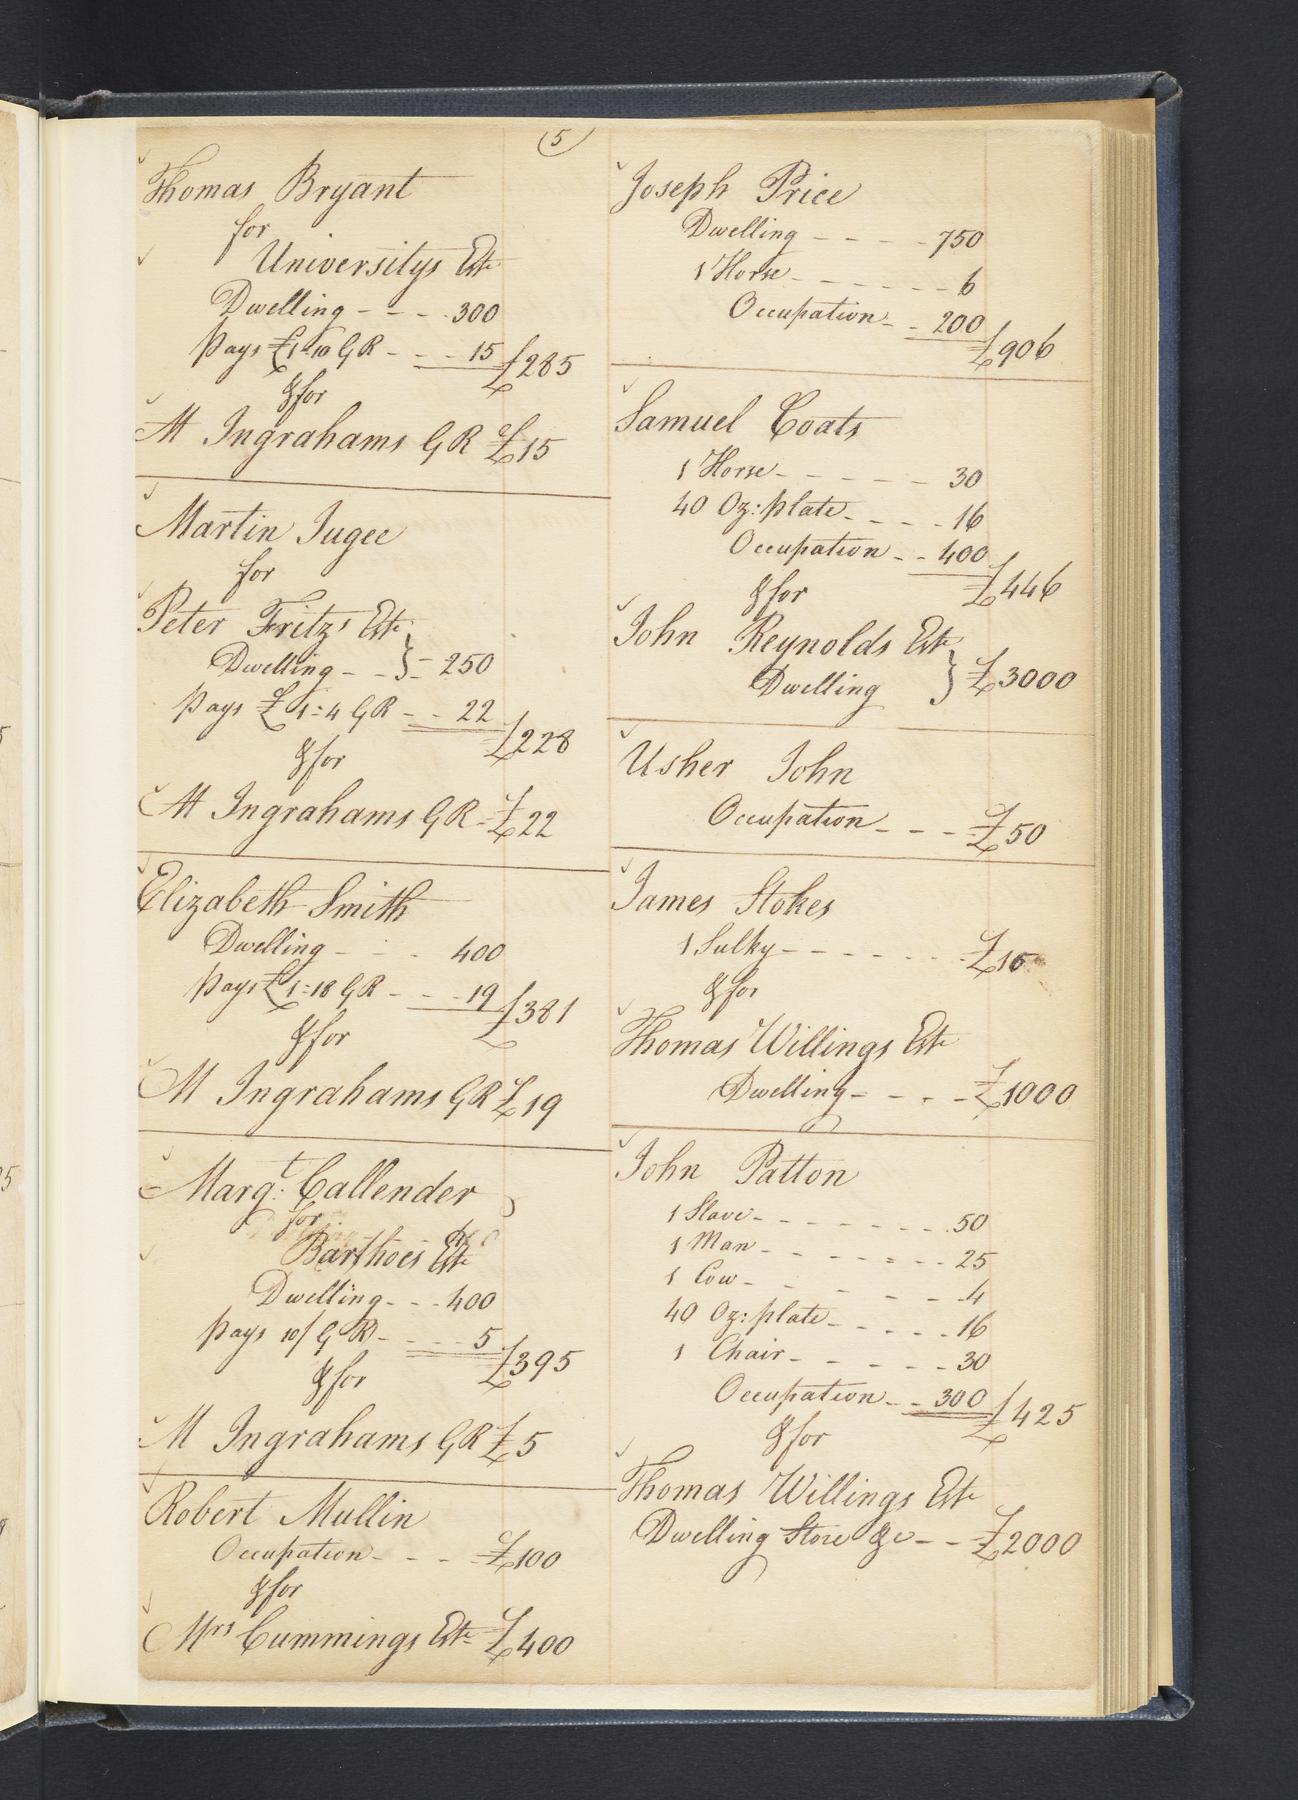 5
Thomas Bryant
for
Universitys Este
Dwelling - - - 300
Pays £1=10 G R - - - 15 £285
& for
M Ingrahams G R £15
Martin Jugee
for
Peter Fritz's Este
Dwelling - - } - 250
Pays £ 4=4 G R - - 22 £228
& for
M Ingrahams G R - £22
Elizabeth Smith
Dwelling - - - 400
Pays £1=18 G R - - - 19 £381
& for
M Ingrahams G R £19
Margt: Callender
for
Barthoes Este
Dwelling - - - 400
Pays 10/ G R - - - - 5 £395
& for
M Ingrahams G R £5
Robert Mullin
Occupation - - - - £100
& for
Mrs Cummings Este £400
Joseph Price
Dwelling - - - - - 750
1 Horse - - - - - - - 6
Occupation - - 200 £906
Samuel Coats
1 Horse - - - - - - 30
40 Oz: plate - - - - 16
Occupation - - 400 £446
& for
John Reynolds Este
Dwelling } £3000
Usher John
Occupation - - - - £50
James Stokes
1 Sulky - - - - - - - £15
& for
Thomas Willings Este
Dwelling - - - - £1000
John Patton
1 Slave - - - - - - - - 50
1 Man - - - - - - - 25
1 Cow - - - - - - - 4
40 Oz: plate - - - - - 16
1 Chair - - - - - - 30
Occupation - - 300 £425
& for
Thomas Willings Este
Dwelling Store &c - - £2000